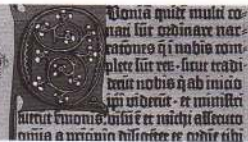 Quoniā quidē multi co-
nati sūt ordinare nar-
rationes q̄ i nobis com-
plete sūt reꝝ: sicut tradi-
derūt nobis q̄ ab inicio
ipi̅ viderūt: et ministri
fuerūt smonis: visū ē et michi assecuto
omnia a pricipio diligēter ex ordīe tibi